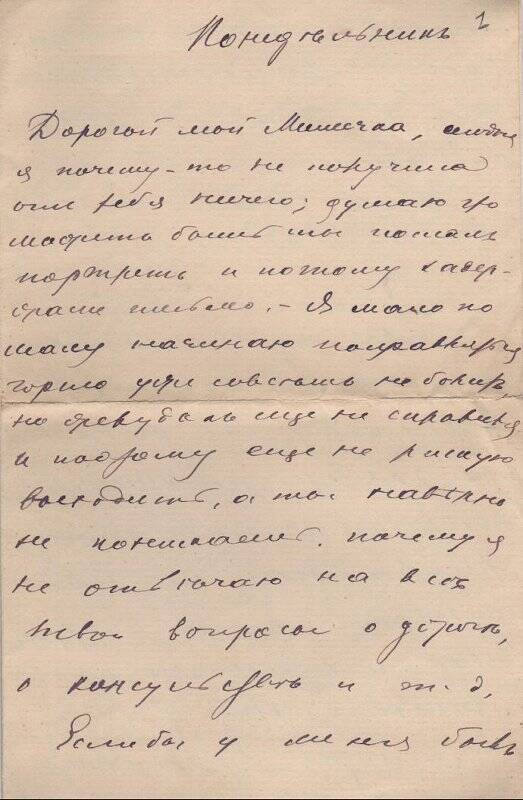 Понедѣльникъ 1
Дорогой мой Мишечка,
я почему-то не получила
отъ тебя ничего; думаю что
можетъ быть ты послалъ
портретъ и потому задер-
жали письмо. – Я мало по
малу начинаю поправляться
горло уже совсѣмъ не болитъ,
но еще не справился
и поэтому еще не рискую
выходить, а ты навѣрно
не понимаешь почему я
не отвѣчаю на всѣ
твои вопросы о
о консульствѣ и т. д.
Если бы у меня былъ